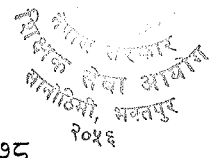 नेपाल सरकार
शिक्षक सेवा आयोग
सानोठिमी, भक्तपुर
२०५६
७८